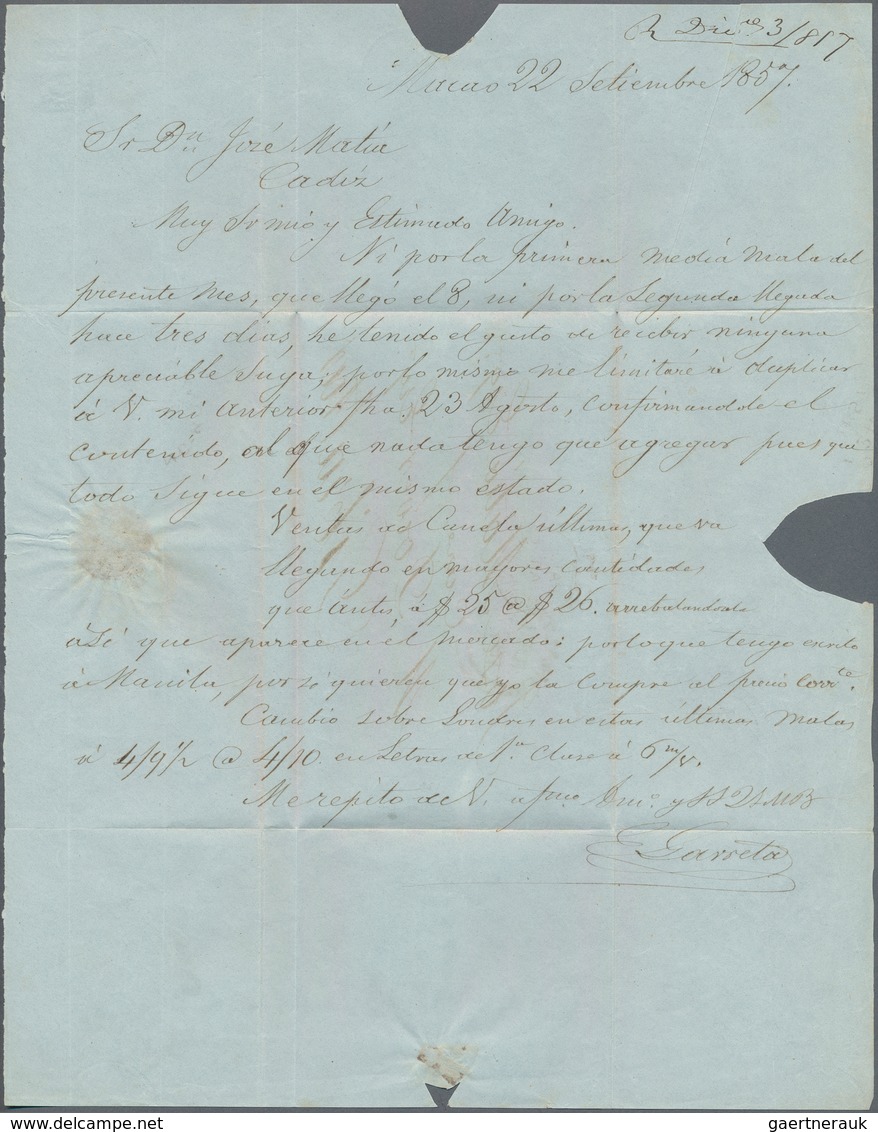 R Dic.re 3/857
Macao 22 Setiembre 1857.
Sr Dn José Matia
Cadiz
Muy Sr mio y Estimado Amigo.
Ni por la primera media mala del
presente mes, que llegó el 8, ni por la Segunda llegada
hace tres dias, he tenido el gusto de recibir ninguna
apreciable Suya; por lo mismo me limitaré á duplicar
á V. mi anterior fha. 23 Agosto, confirmandole el
contenido, al que nada tengo que agregar pues que
todo Sigue en el mismo estado.
Ventas de Canela últimas, que va
llegando en mayores cantidades
que ántes, á $ 25 @ $ 26. arrebatandose
asi que aparece en el mercado: por lo que tengo escrito
á Manila, por si quieren que yo la compre al precio corr.te.
Cambio sobre Londres en estas últimas malas
á 4/9½ @ 4/10. en Letras de 1.a clase á 6 m/v.
Me repito de V. Amo. y SS
Garreta
gaertnerauk